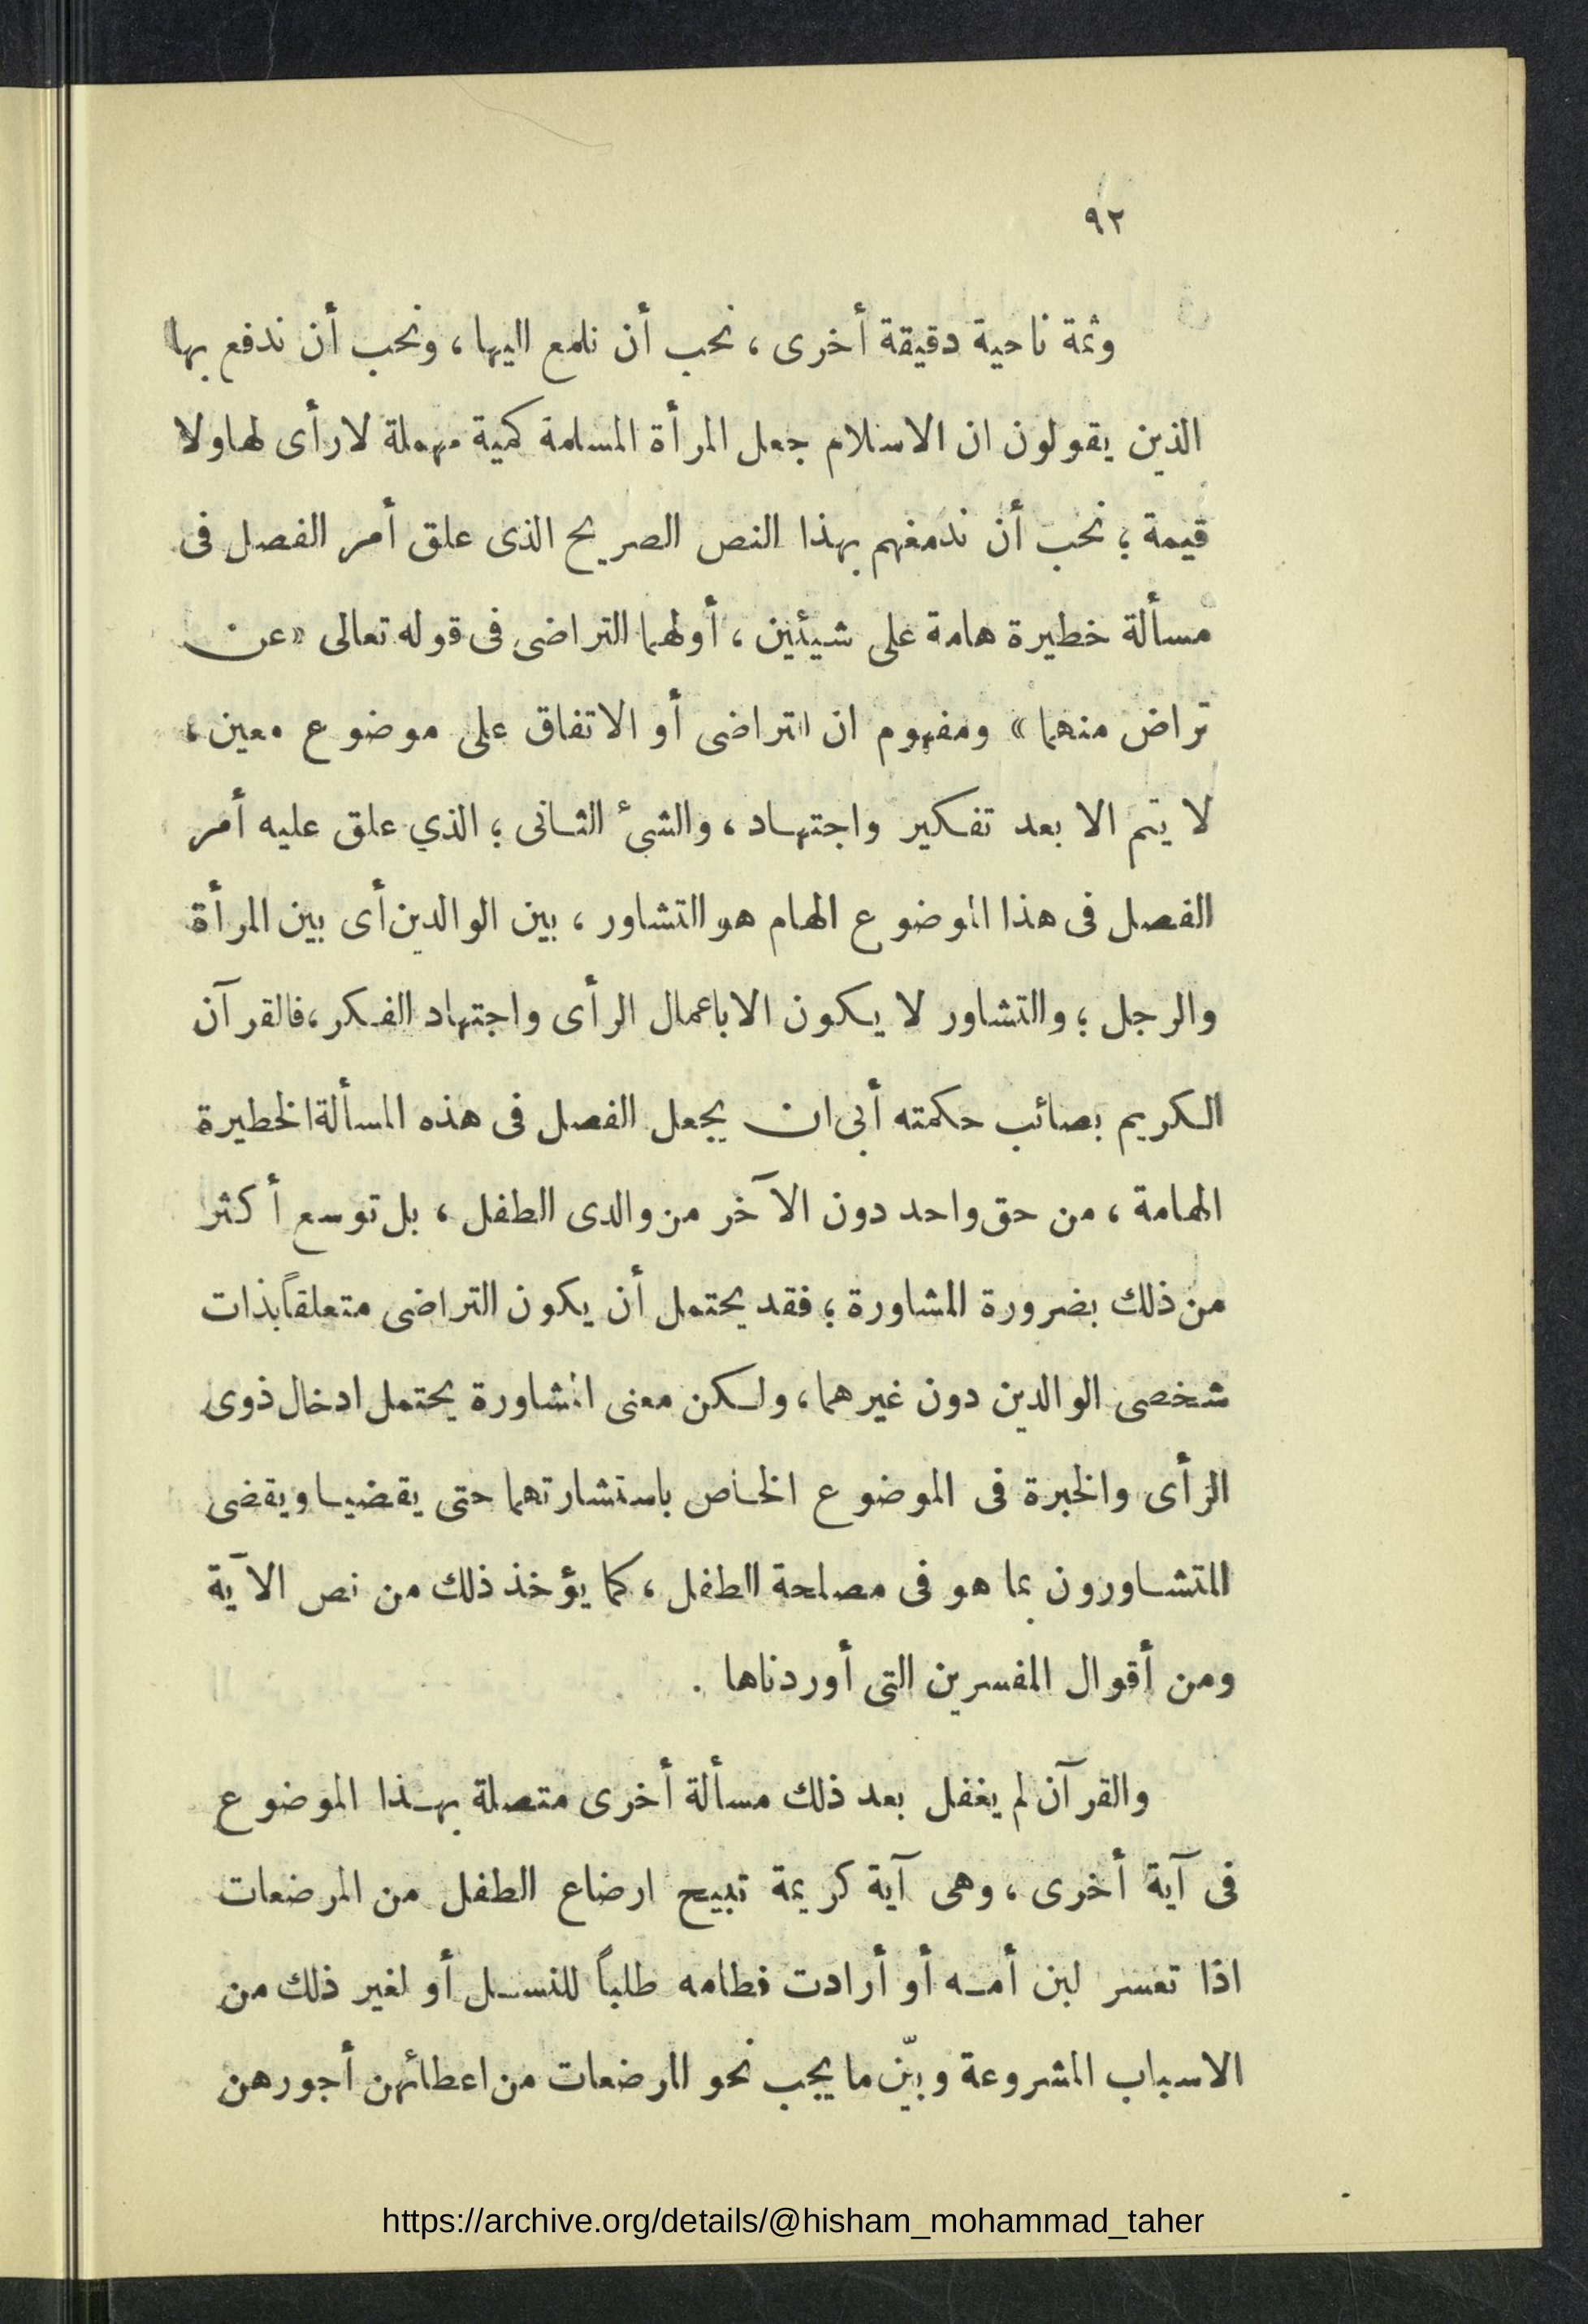 ٩٢
وثمة ناحية دقيقة أخرى ، نحب أن نلمع اليها ، ونحب أن ندفع بها
الذين يقولون ان الاسلام جعل المرأة المسلمة كمية مهملة لا رأى لها ولا
قيمة ؛ نحب أن ندمغهم بهذا النص الصريح الذى علق أمر الفصل فى
مسألة خطيرة هامة على شيئين ، أولهما التراضى فى قوله تعالى « عن
تراض منهما » ومفهوم ان التراضى أو الاتفاق على موضوع معين ،
لا يتم الا بعد تفكير واجتهاد ، والشئ الثانى ؛ الذي علق عليه أمر
الفصل فى هذا الموضوع الهام هو التشاور ، بين الوالدين أى بين المرأة
والرجل ؛ والتشاور لا يكون الا باعمال الرأى واجتهاد الفكر ، فالقرآن
الكريم بصائب حكمته أبى ان يجعل الفصل فى هذه المسألة الخطيرة
الهامة ، من حق واحد دون الآخر من والدى الطفل ، بل توسع أكثر
من ذلك بضرورة المشاورة ؛ فقد يحتمل أن يكون التراضى متعلقاً بذات
شخصى الوالدين دون غيرهما ، ولكن معنى المشاورة يحتمل ادخال ذوى
الرأى والخبرة فى الموضوع الخاص باستشارتهما حتى يقضيا ويقضى
المتشاورون بما هو فى مصلحة الطفل ، كما يؤخذ ذلك من نص الآية
ومن أقوال المفسرين التى أوردناها .
والقرآن لم يغفل بعد ذلك مسألة أخرى متصلة بهذا الموضوع
فى آية أخرى ، وهى آية كريمة تبيح ارضاع الطفل من المرضعات
اذا تعسر لبن أمه أو أرادت فطامه طلباً للنسل أو لغير ذلك من
الاسباب المشروعة وبيّن ما يجب نحو المرضعات من اعطائهن أجورهن
https://archive.org/details/@hisham_mohammad_taher